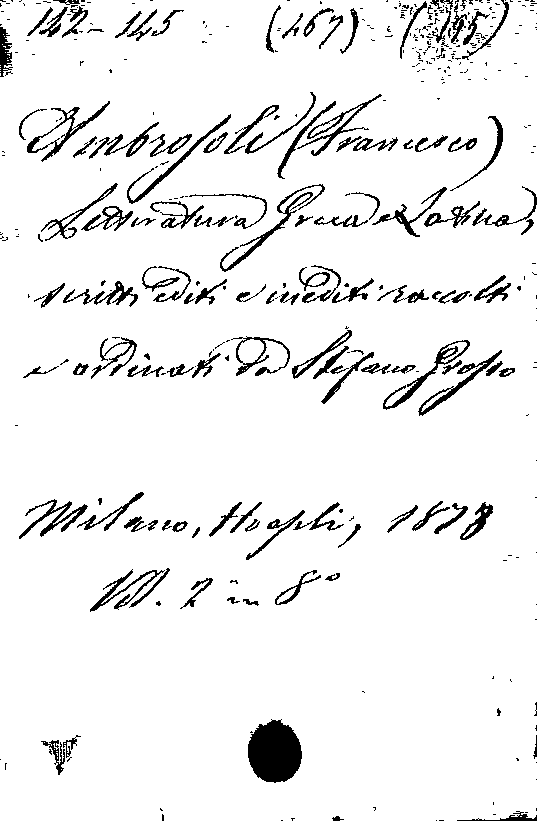 142-145 (467) (195)
Ambrosoli (Francesco)
Letteratura Greca e Latina,
scritti editi e inediti raccolti
e ordinati da Stefano Grosso
Milano, Hoepli, 1878
Vol. 2 in 8º